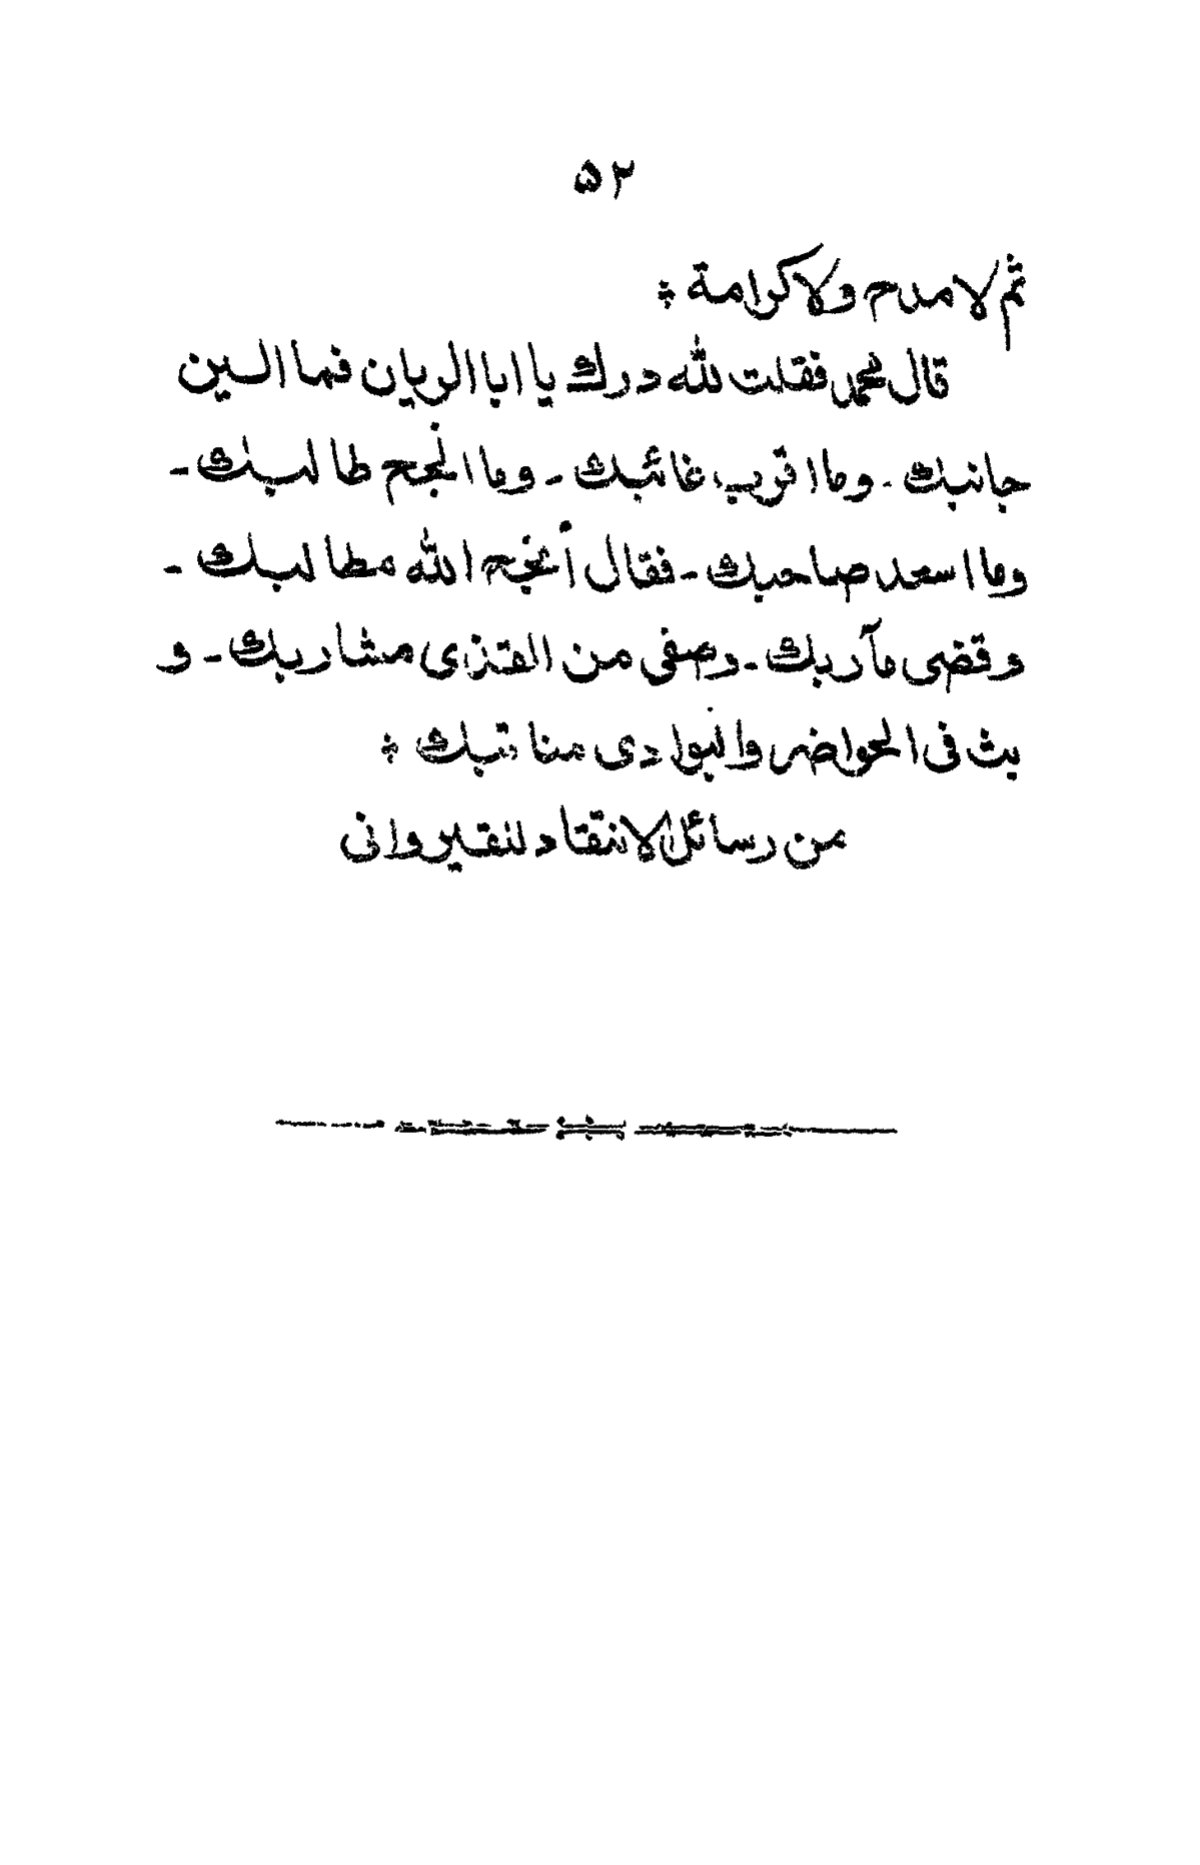 ۵۲
ثم لا مدح ولا كرامة *
قال محمد فقلت لله درك يا ابا الريان فما الين
جانبك - وما اقرب غائبك - وما انجح طالبك -
وما اسعد صاحبك - فقال أنجح الله مطالبك -
وقضى مآربك - وصفى من القذى مشاربك - و
بث فى الحواضر والبوادى مناقبك *
من رسائل الانتقاد للقيروانى